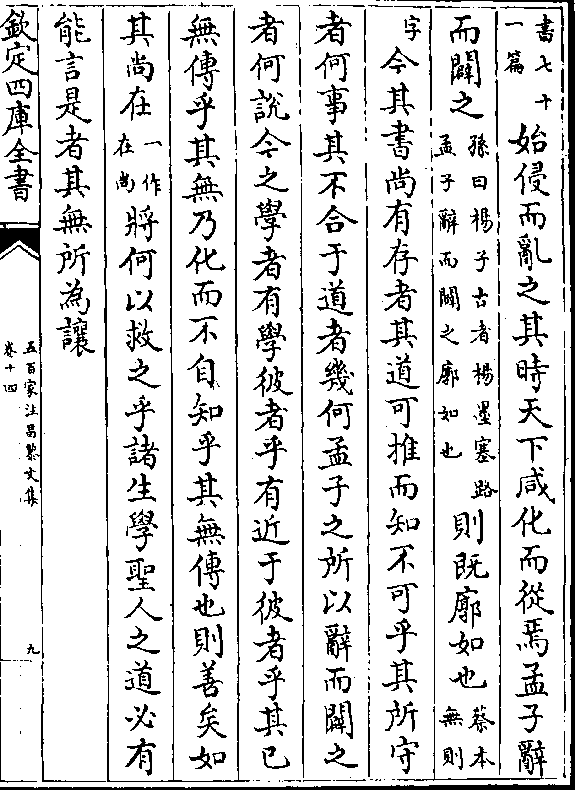 書七十一篇始侵而亂之其時天下咸化而從焉孟子辭
而闢之孫曰楊子古者楊墨塞路孟子辭而闢之廓如也則既廓如也蔡本無則
字今其書尚有存者其道可推而知不可乎其所守
者何事其不合于道者幾何孟子之所以辭而闢之
者何說今之學者有學彼者乎有近于彼者乎其已
無傳乎其無乃化而不自知乎其無傳也則善矣如
其尚在一作在尚將何以救之乎諸生學聖人之道必有
能言是者其無所為讓
欽定四庫全書
五百家注昌黎文集
卷十四
九